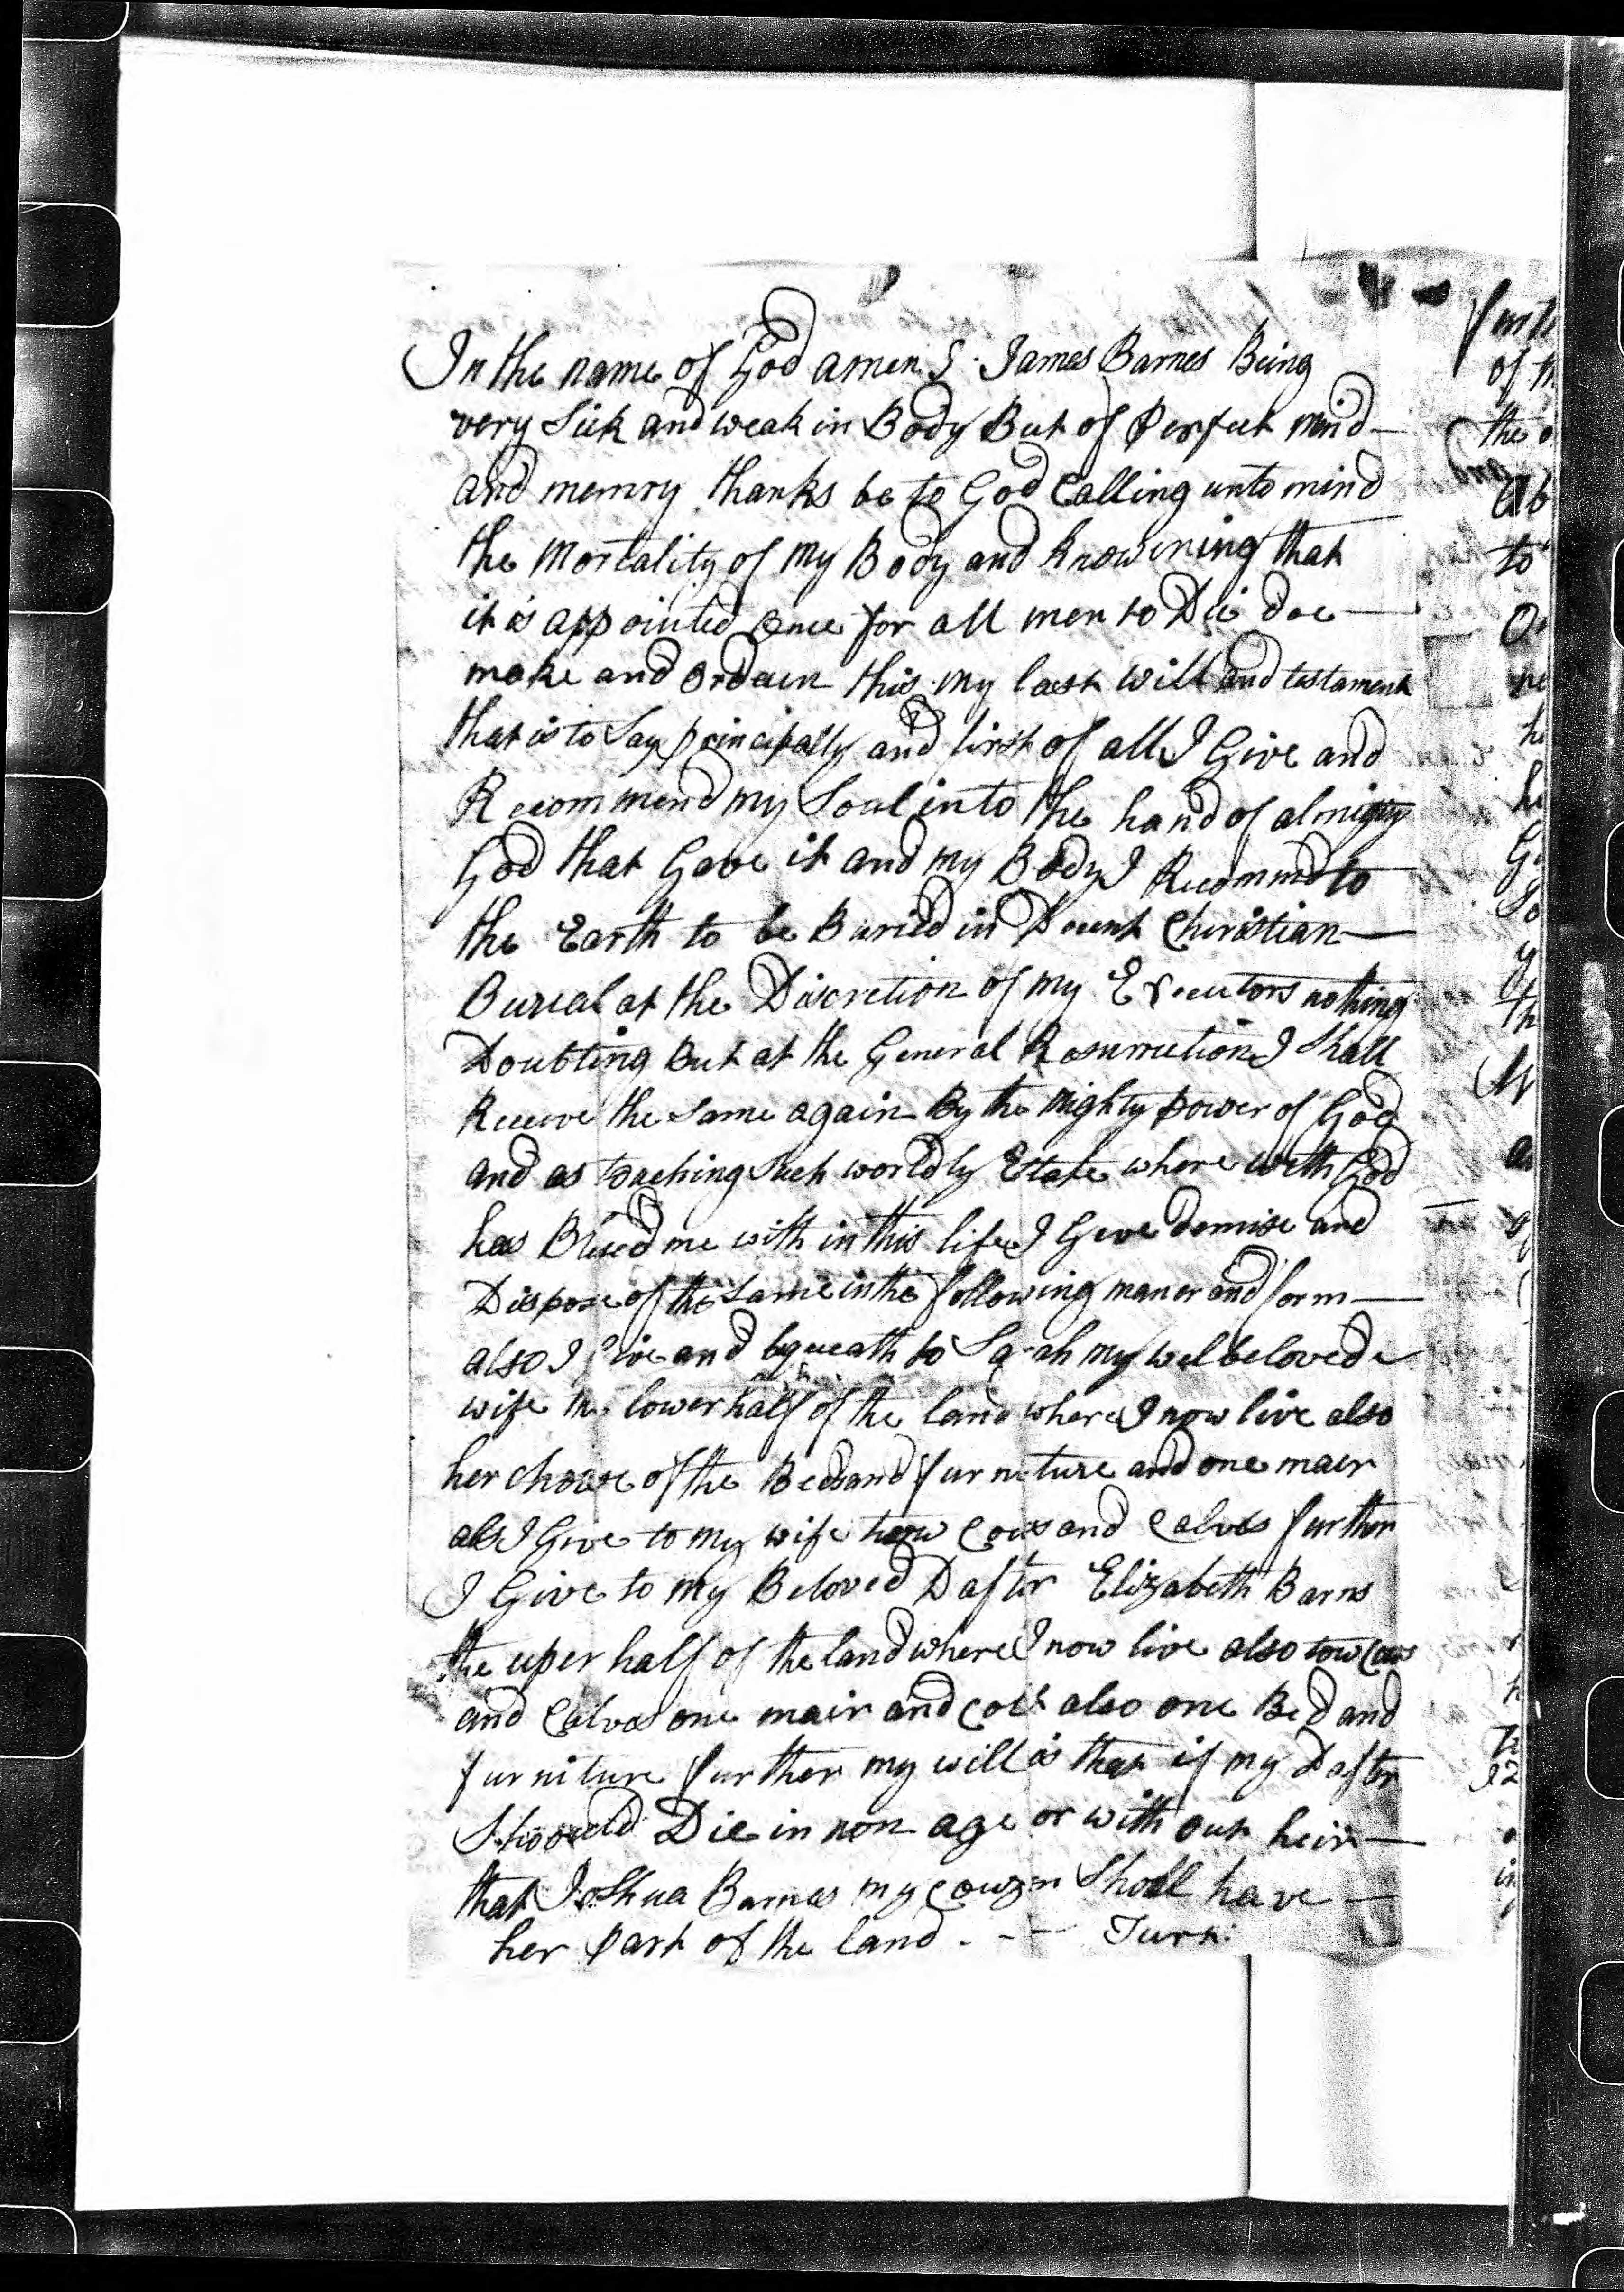 In the name of God amen I James Barnes Being
very Sick and weak in Body But of Perfect mind
and memry thanks be to God Calling unto mind
the Mortality of my Body and knowining that
it is appointed once for all men to Die doe
make and ordain this my last will and testament
that is to Say principally and first of all I Give and
Recommend my Soul into the hand of almigty
God that Gave it and my Body I Recommnd to
the Earth to be Buried in Decent Christian
Burial at the Discretion of my Executors nothing
Doubting But at the General Resurrection I Shall
Receive the Same again By the mighty power of God
and as touching Such worldly Estate where with God
has Blesed me with in this life I Give demise and
Dispose of the Same in the following maner and form
also I Give and bequeath to Sarah my welbeloved
wife the lower half of the land where I now live also
her choise of the Beds and furniture and one maer
als I Give to my wife tow Cows and Calves further
I Give to my Beloved Dafter Elizabeth Barns
the uper half of the land where I now live also tow Cows
and Calves one mair and Colt also one Bed and
furniture further my will is that if my Dafter
Shoould Die in non age or with out heir
that Joshua Barnes my Couzen Shall have
her part of the land - - - Turn